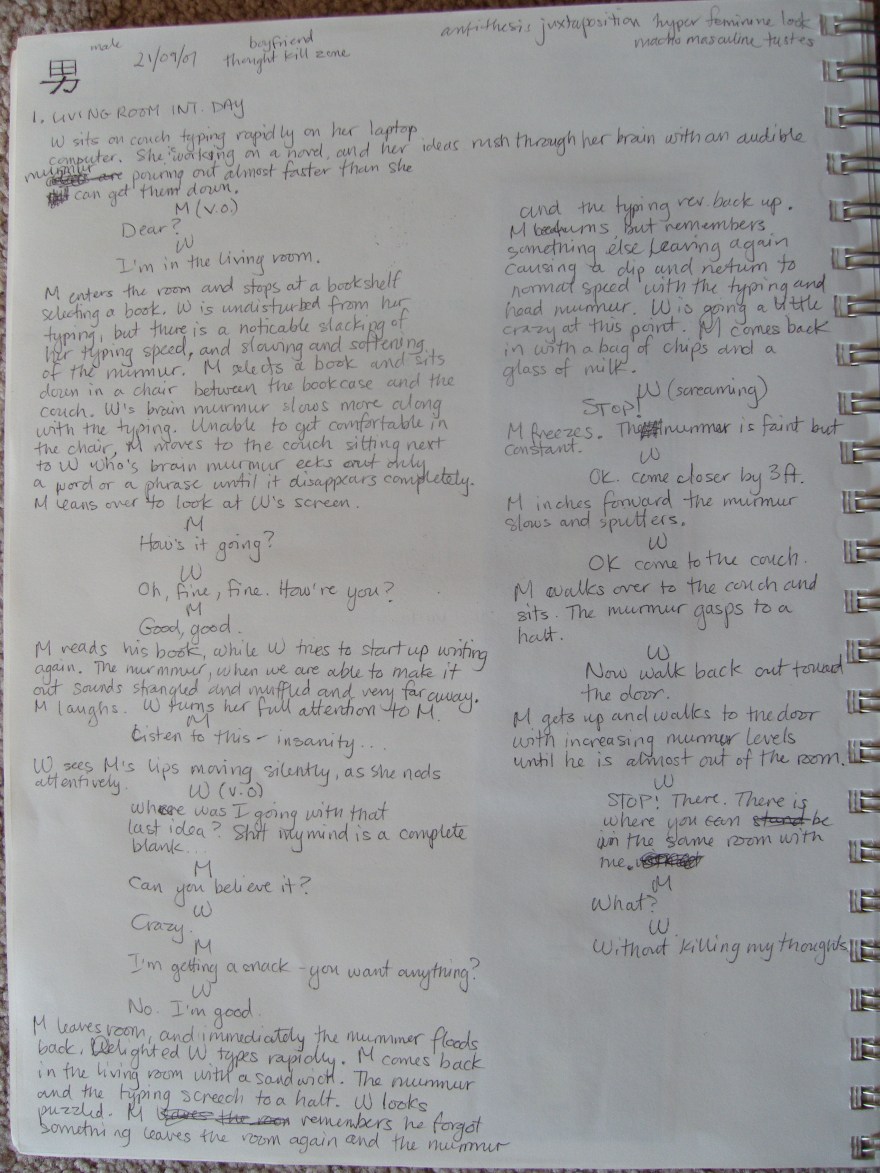 男
male
21/09/07
boyfriend
thought kill zone
antithesis juxtaposition hyper feminine look
macho masculine tastes
1. LIVING ROOM INT. DAY
W sits on couch typing rapidly on her laptop
computer. She's working on a novel, and her ideas rush through her brain with an audible
murmur
pouring out almost faster than she
can get them down.
M (v.o.)
Dear?
W
I'm in the living room.
M enters the room and stops at a bookshelf
selecting a book. W is undisturbed from her
typing, but there is a noticable slacking of
her typing speed, and slowing and softening
of the murmur. M selects a book and sits
down in a chair between the bookcase and the
couch. W's brain murmur slows more along
with the typing. Unable to get comfortable in
the chair, M moves to the couch sitting next
to W who's brain murmur eeks out only
a word or a phrase until it disappears completely.
M leans over to look at W's screen.
M
How's it going?
W
Oh, fine, fine. How're you?
M
Good, good.
M reads his book, while W tries to start up writing
again. The murmmur, when we are able to make it
out sounds strangled and muffled and very far away.
M laughs. W turns her full attention to M.
M
Listen to this - insanity...
W sees M's lips moving silently, as she nods
attentively.
W (v.o)
Where was I going with that
last idea? Shit my mind is a complete
blank...
M
Can you believe it?
W
Crazy.
M
I'm getting a snack - you want anything?
W
No. I'm good.
M leaves room, and immediately the murmmer floods
back. Delighted W types rapidly. M comes back
in the living room with a sandwich. The murmur
and the typing screech to a halt. W looks
puzzled. M leaves the room remembers he forgot
something leaves the room again and the murmur
and the typing rev back up.
M returns, but remembers
something else leaving again
causing a dip and return to
normal speed with the typing and
head murmur. W is going a little
crazy at this point. M comes back
in with a bag of chips and a
glass of milk.
W (screaming)
STOP!
M freezes. The murmer is faint but
constant.
W
OK. come closer by 3ft.
M inches forward the murmur
slows and sputters.
W
OK come to the couch.
M walks over to the couch and
sits. The murmur gasps to a
halt.
W
Now walk back out toward
the door.
M gets up and walks to the door
with increasing murmur levels
until he is almost out of the room.
W
STOP! There. There is
where you can stand be
in the same room with
me.
M
What?
W
Without killing my thoughts